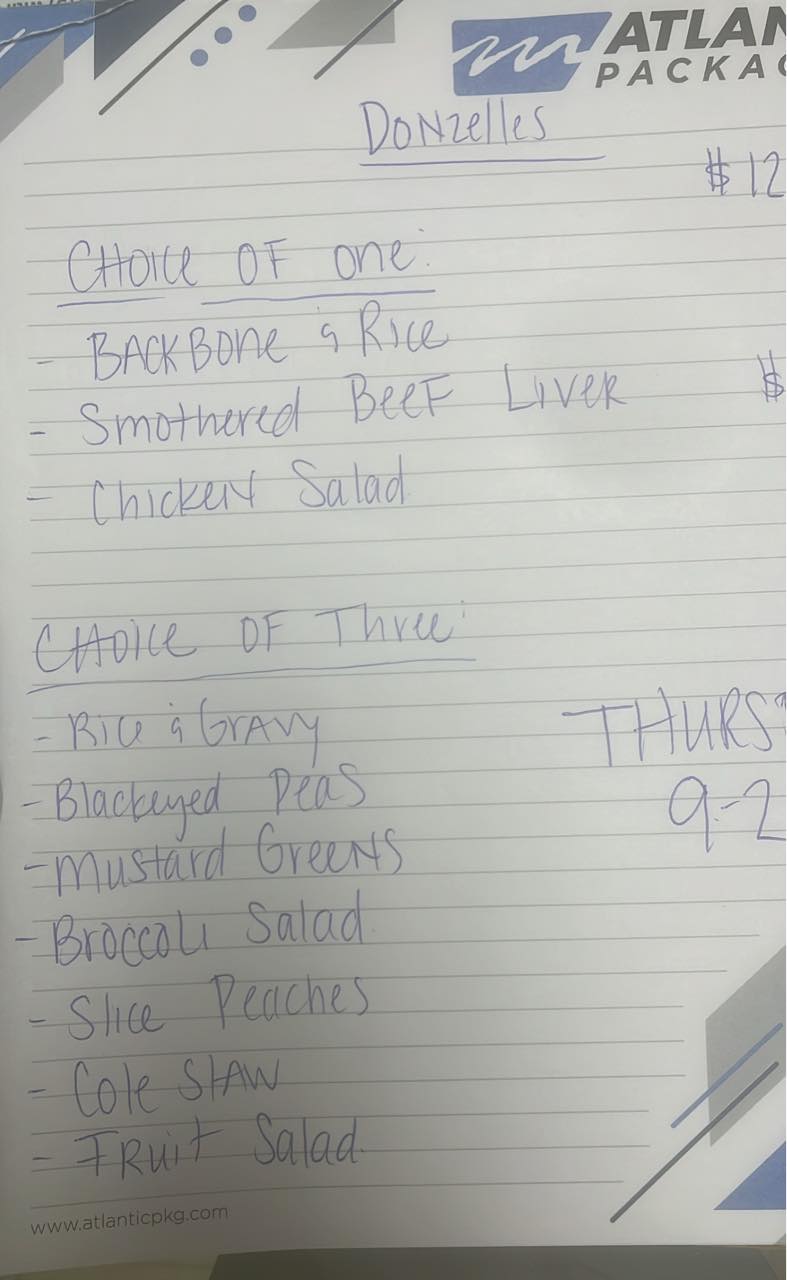 ATLAN
PACKAG
Donzelles
$12
Choice of one:
- Backbone & Rice
- Smothered Beef Liver $
- Chicken Salad
Choice of Three:
- Rice & Gravy
THURS
- Blackeyed Peas
9-2
- Mustard Greens
- Broccoli Salad
- Slice Peaches
- Cole Slaw
- Fruit Salad
www.atlanticpkg.com